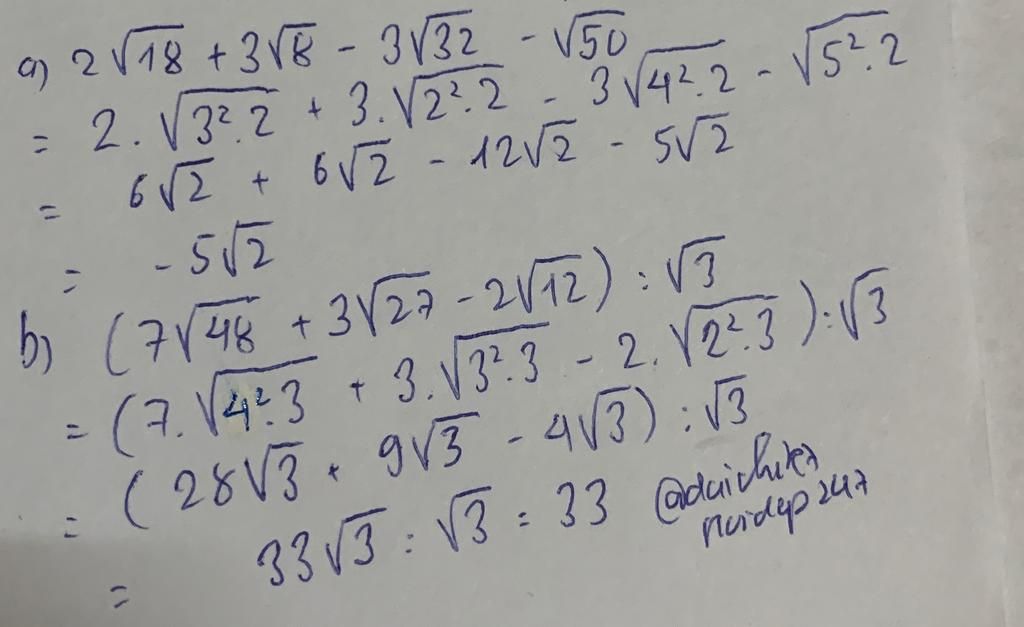 a) 2√18 + 3√8 - 3√32 - √50
= 2.√3².2 + 3.√2².2 - 3√4².2 - √5².2
= 6√2 + 6√2 - 12√2 - 5√2
= -5√2
b) (7√48 + 3√27 - 2√12) : √3
= (7.√4².3 + 3.√3².3 - 2.√2².3) : √3
= (28√3 + 9√3 - 4√3) : √3
= 33√3 : √3 = 33